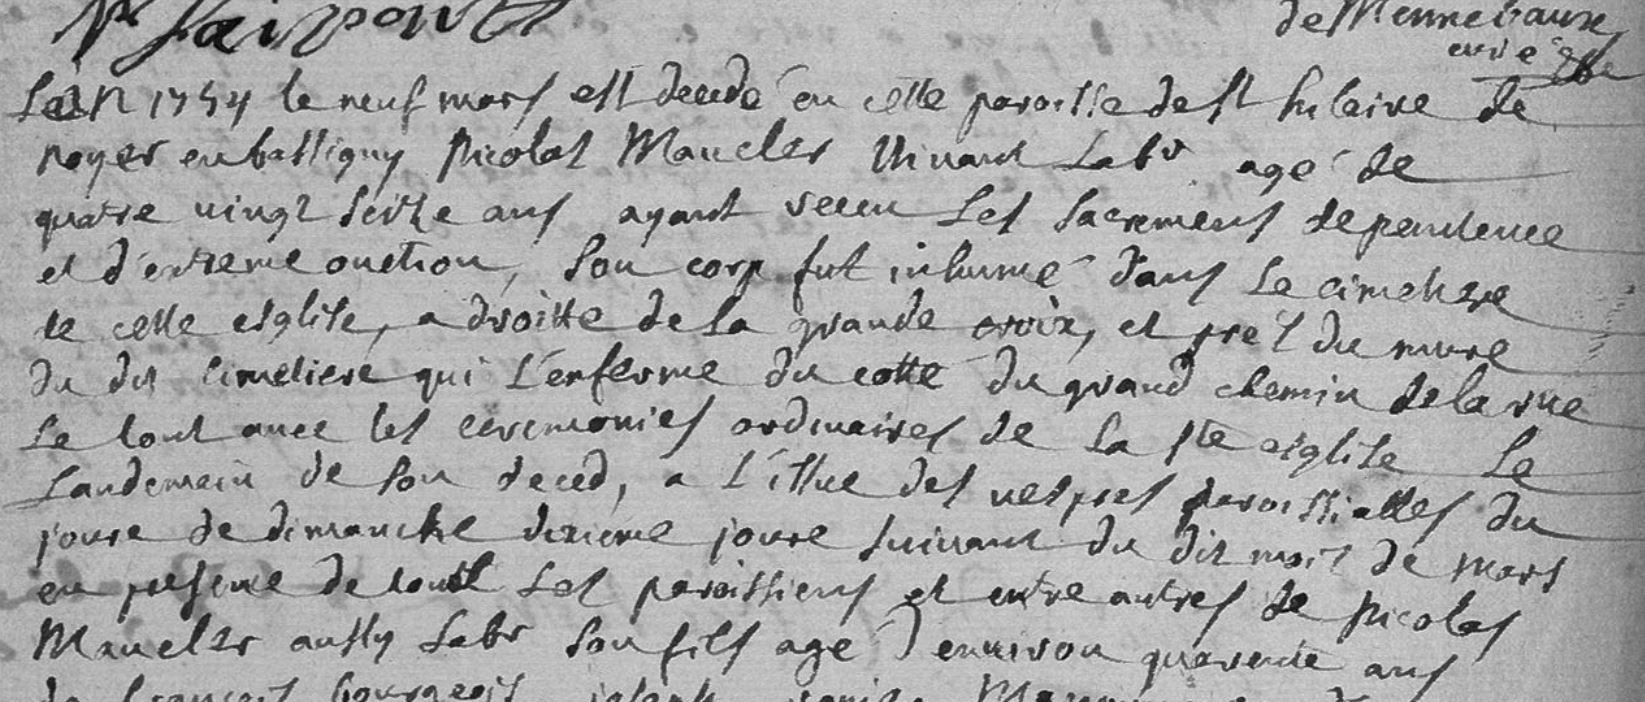 de Mennevaux
curé
L'an 1754 le neuf mars est decedé en cette paroisse de st hilaire de
noyer en bassigny Nicolas Maucler vivant Labr agé de
quatre vingt seize ans ayant receu Les sacremens de penitence
et d'extreme onction, son corp fut inhumé dans Le cimetiere
de cette esglise, a droitte de la grande croix, et pres du mure
du dit cimetiere qui L'enferme du cotté du grand chemin de la rue
Le tout avec les ceremonies ordinaires de La ste esglise Le
Landemain de son deced, a L'issue des vespres paroissialles du
joure de dimanche dixieme joure suivant du dit mois de mars
en presence de tout Les paroissiens et entre autres de Nicolas
Maucler aussy Labr son fils agé d environ quarente ans
de francois bourgeois